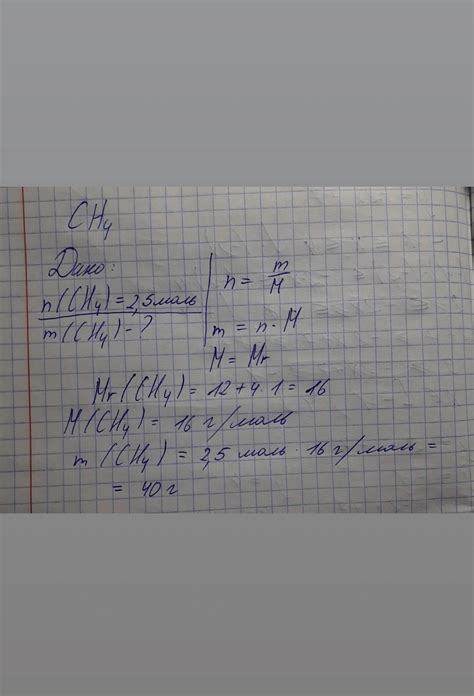 CH₄
Дано:
n(CH₄) = 2,5 моль
m(CH₄) - ?
n = m/M
m = n · M
M = Mr
Mr(CH₄) = 12 + 4 · 1 = 16
M(CH₄) = 16 г/моль
m (CH₄) = 2,5 моль · 16 г/моль =
= 40 г